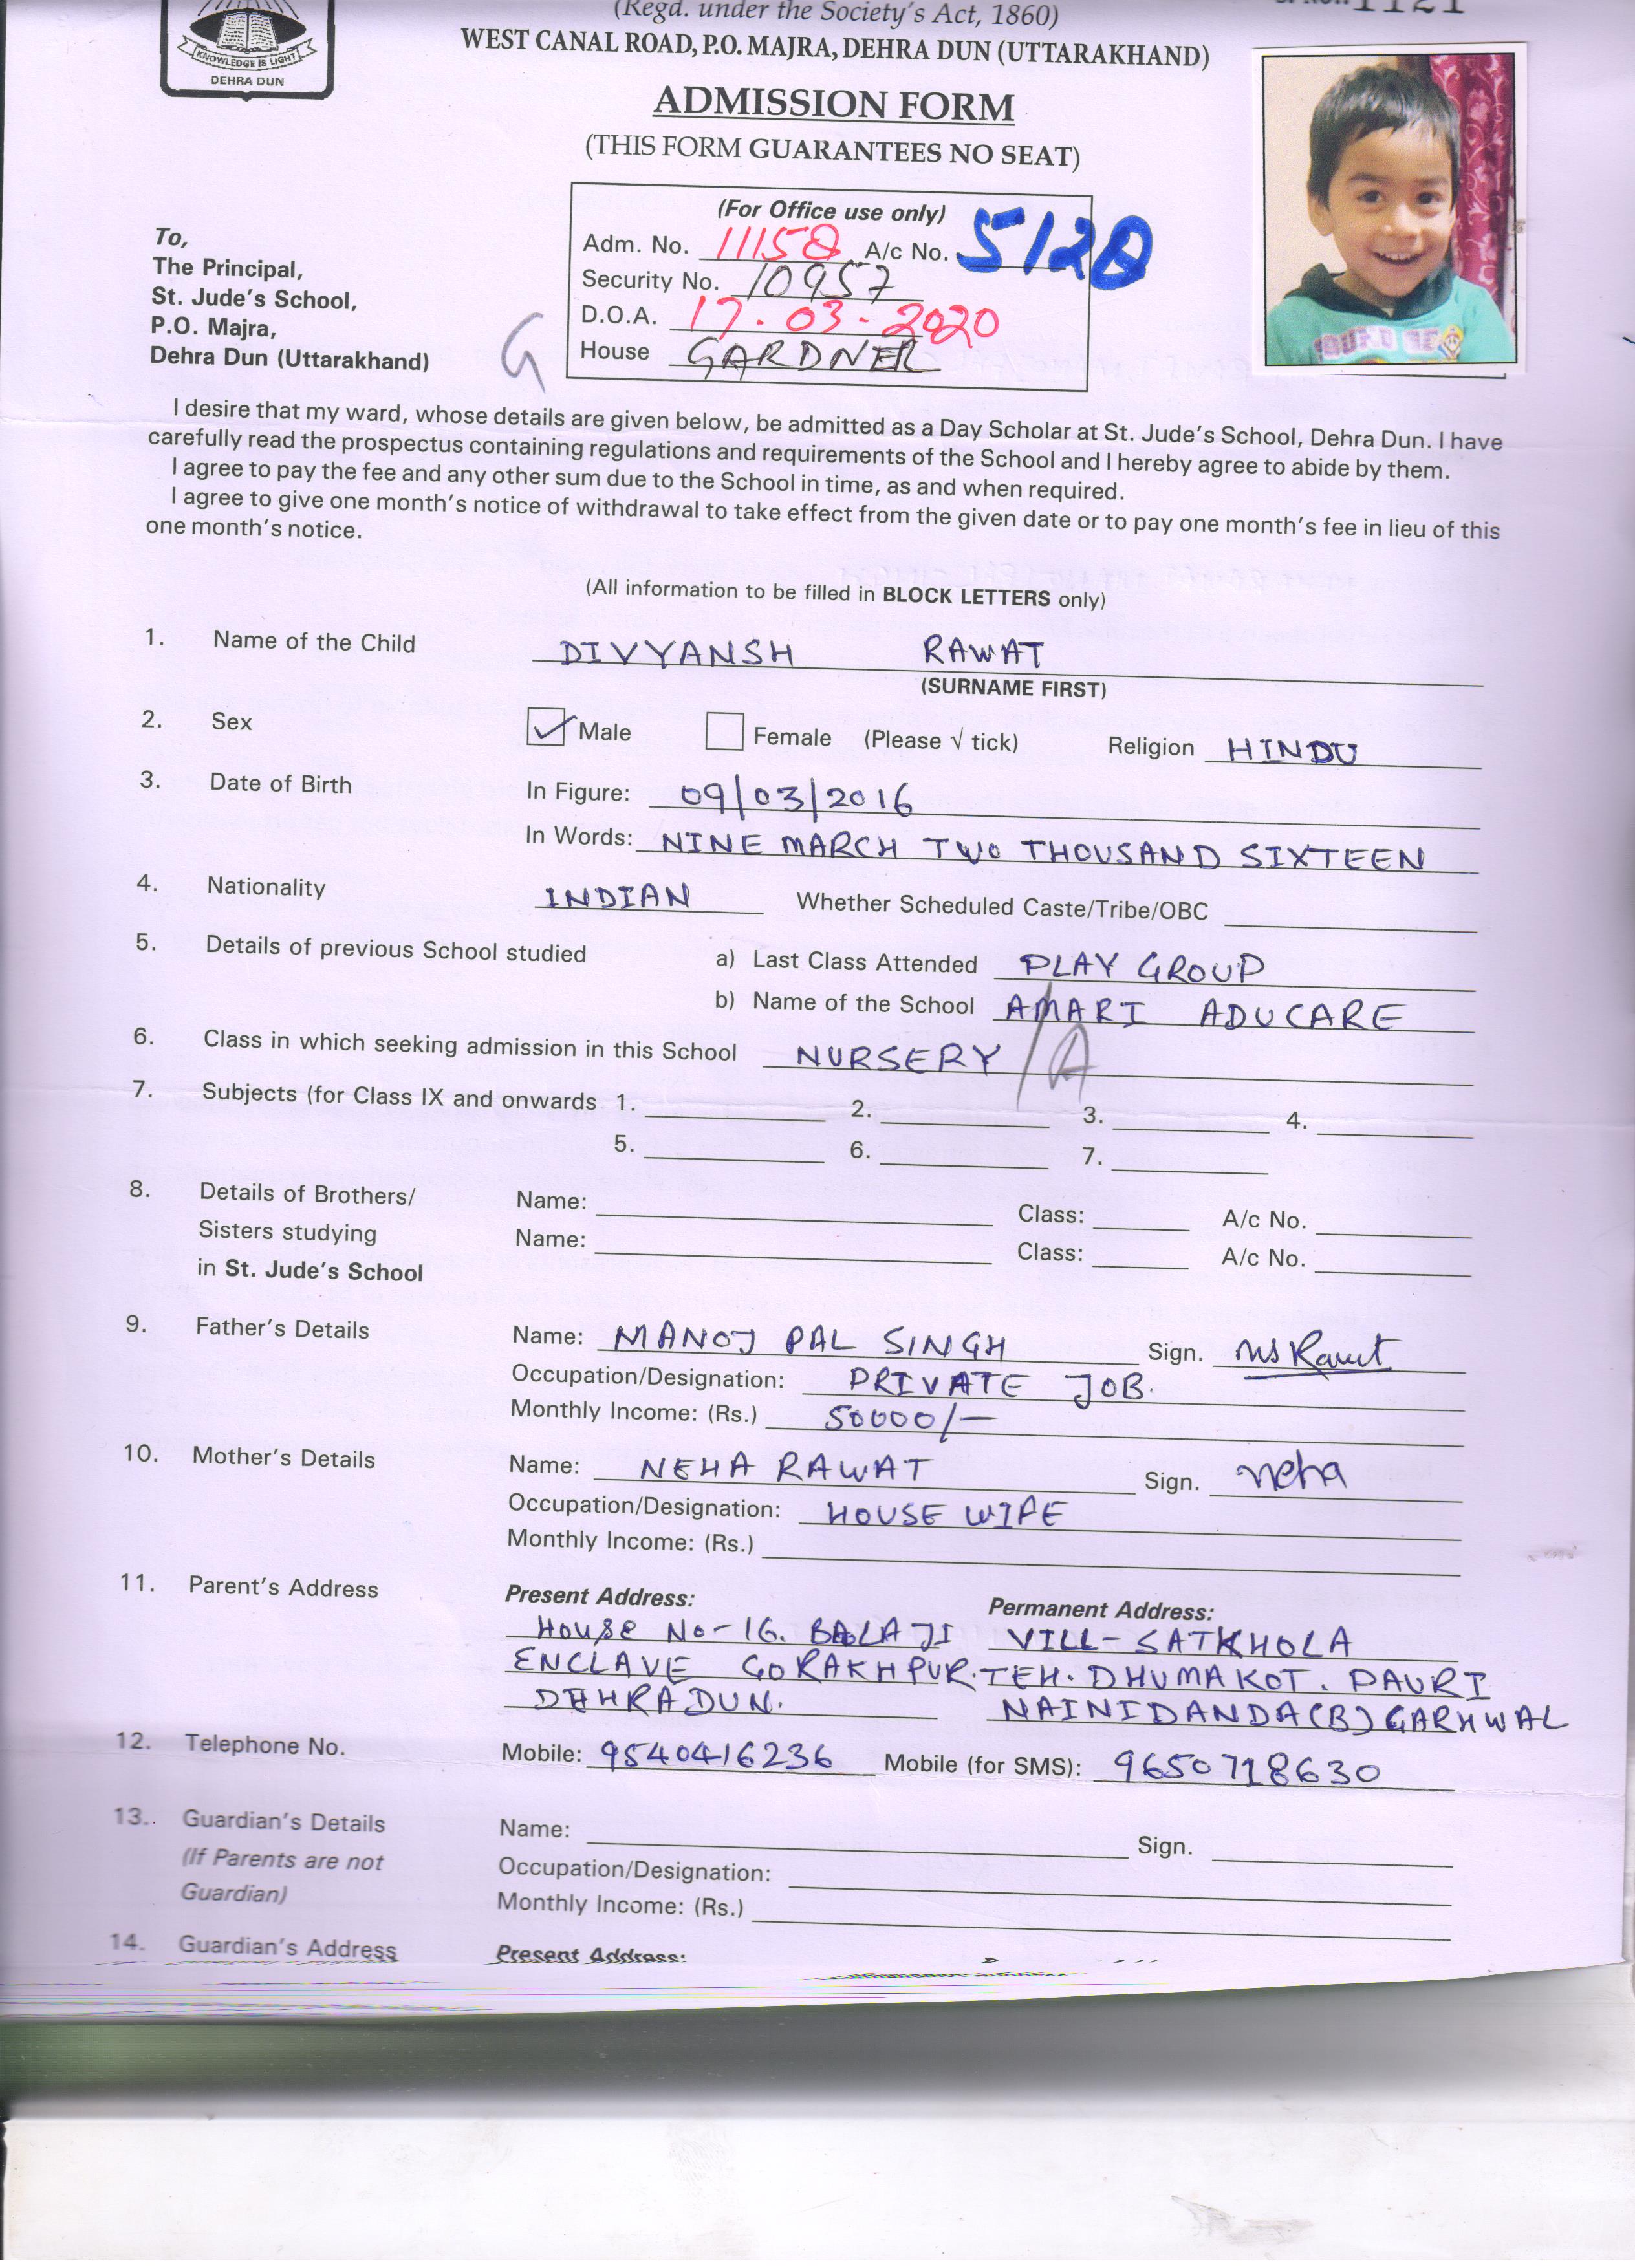 (Regd. under the Society's Act, 1860)
WEST CANAL ROAD, P.O. MAJRA, DEHRA DUN (UTTARAKHAND)
KNOWLEDGE IS LIGHT
DEHRA DUN
ADMISSION FORM
(THIS FORM GUARANTEES NO SEAT)
(For Office use only)
Adm. No. 11158 A/c No. 5128
Security No. 10957
D.O.A. 17.03.2020
House GARDNER
To,
The Principal,
St. Jude's School,
P.O. Majra,
Dehra Dun (Uttarakhand)
G
I desire that my ward, whose details are given below, be admitted as a Day Scholar at St. Jude's School, Dehra Dun. I have
carefully read the prospectus containing regulations and requirements of the School and I hereby agree to abide by them.
I agree to pay the fee and any other sum due to the School in time, as and when required.
I agree to give one month's notice of withdrawal to take effect from the given date or to pay one month's fee in lieu of this
one month's notice.
(All information to be filled in BLOCK LETTERS only)
1. Name of the Child DIVYANSH RAWAT
(SURNAME FIRST)
2. Sex ✓ Male Female (Please √ tick) Religion HINDU
3. Date of Birth In Figure: 09/03/2016
In Words: NINE MARCH TWO THOUSAND SIXTEEN
4. Nationality INDIAN Whether Scheduled Caste/Tribe/OBC
5. Details of previous School studied a) Last Class Attended PLAY GROUP
b) Name of the School AMARI ADUCARE
6. Class in which seeking admission in this School NURSERY /A
7. Subjects (for Class IX and onwards 1. 2. 3. 4.
5. 6. 7.
8. Details of Brothers/ Name: Class: A/c No.
Sisters studying Name: Class: A/c No.
in St. Jude's School
9. Father's Details Name: MANOJ PAL SINGH Sign. MS Rawat
Occupation/Designation: PRIVATE JOB.
Monthly Income: (Rs.) 50000/-
10. Mother's Details Name: NEHA RAWAT Sign. neha
Occupation/Designation: HOUSE WIFE
Monthly Income: (Rs.)
11. Parent's Address Present Address: Permanent Address:
House No-16. BALAJI VILL-SATKHOLA
ENCLAVE GORAKHPUR. TEH. DHUMAKOT. PAURI
DEHRADUN. NAINIDANDA(B) GARHWAL
12. Telephone No. Mobile: 9540416236 Mobile (for SMS): 9650718630
13. Guardian's Details Name: Sign.
(If Parents are not Occupation/Designation:
Guardian) Monthly Income: (Rs.)
14. Guardian's Address Present Address: